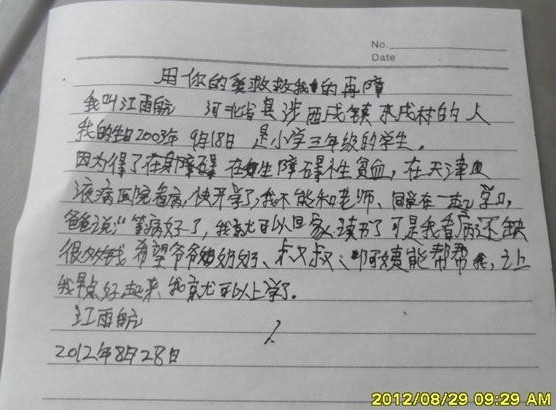 No.
Date
用你的爱救救我的再障
我叫江雨航 河北省县涉西戌镇东戌村的人
我的生日2003年 9月18日 是小学三年级的学生。
因为得了在身障碍 在生障碍性贫血,在天津血
液病医院看病,快开学了,我不能和老师、同学在一起学习,
爸爸说“等病好了,我就可以回家读书了可是我看病还缺
很多钱 希望爷爷奶奶、叔叔、阿姨能帮帮我,让
我早点好起来 我就可以上学了。
江雨航
2012年8月28日
2012/08/29 09:29 AM